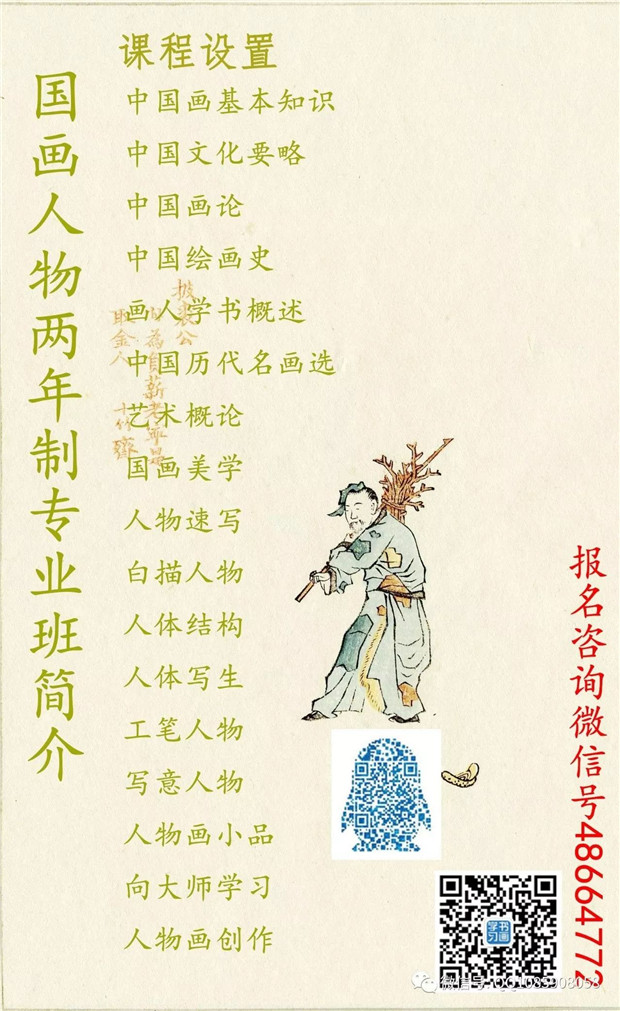 国画人物两年制专业班简介
课程设置
中国画基本知识
中国文化要略
中国画论
中国绘画史
画人学书概述
中国历代名画选
艺术概论
国画美学
人物速写
白描人物
人体结构
人体写生
工笔人物
写意人物
人物画小品
向大师学习
人物画创作
披裘公
取金人
十竹斋
报名咨询微信号48664772
学书
习画
微信号: QQ1083908058